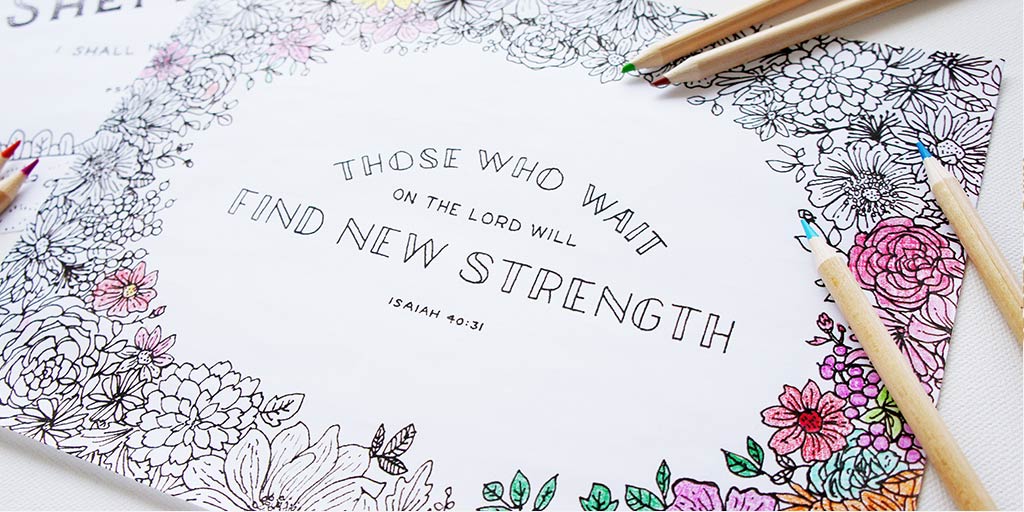 I SHALL
THOSE WHO WAIT
ON THE LORD WILL
FIND NEW STRENGTH
ISAIAH 40:31